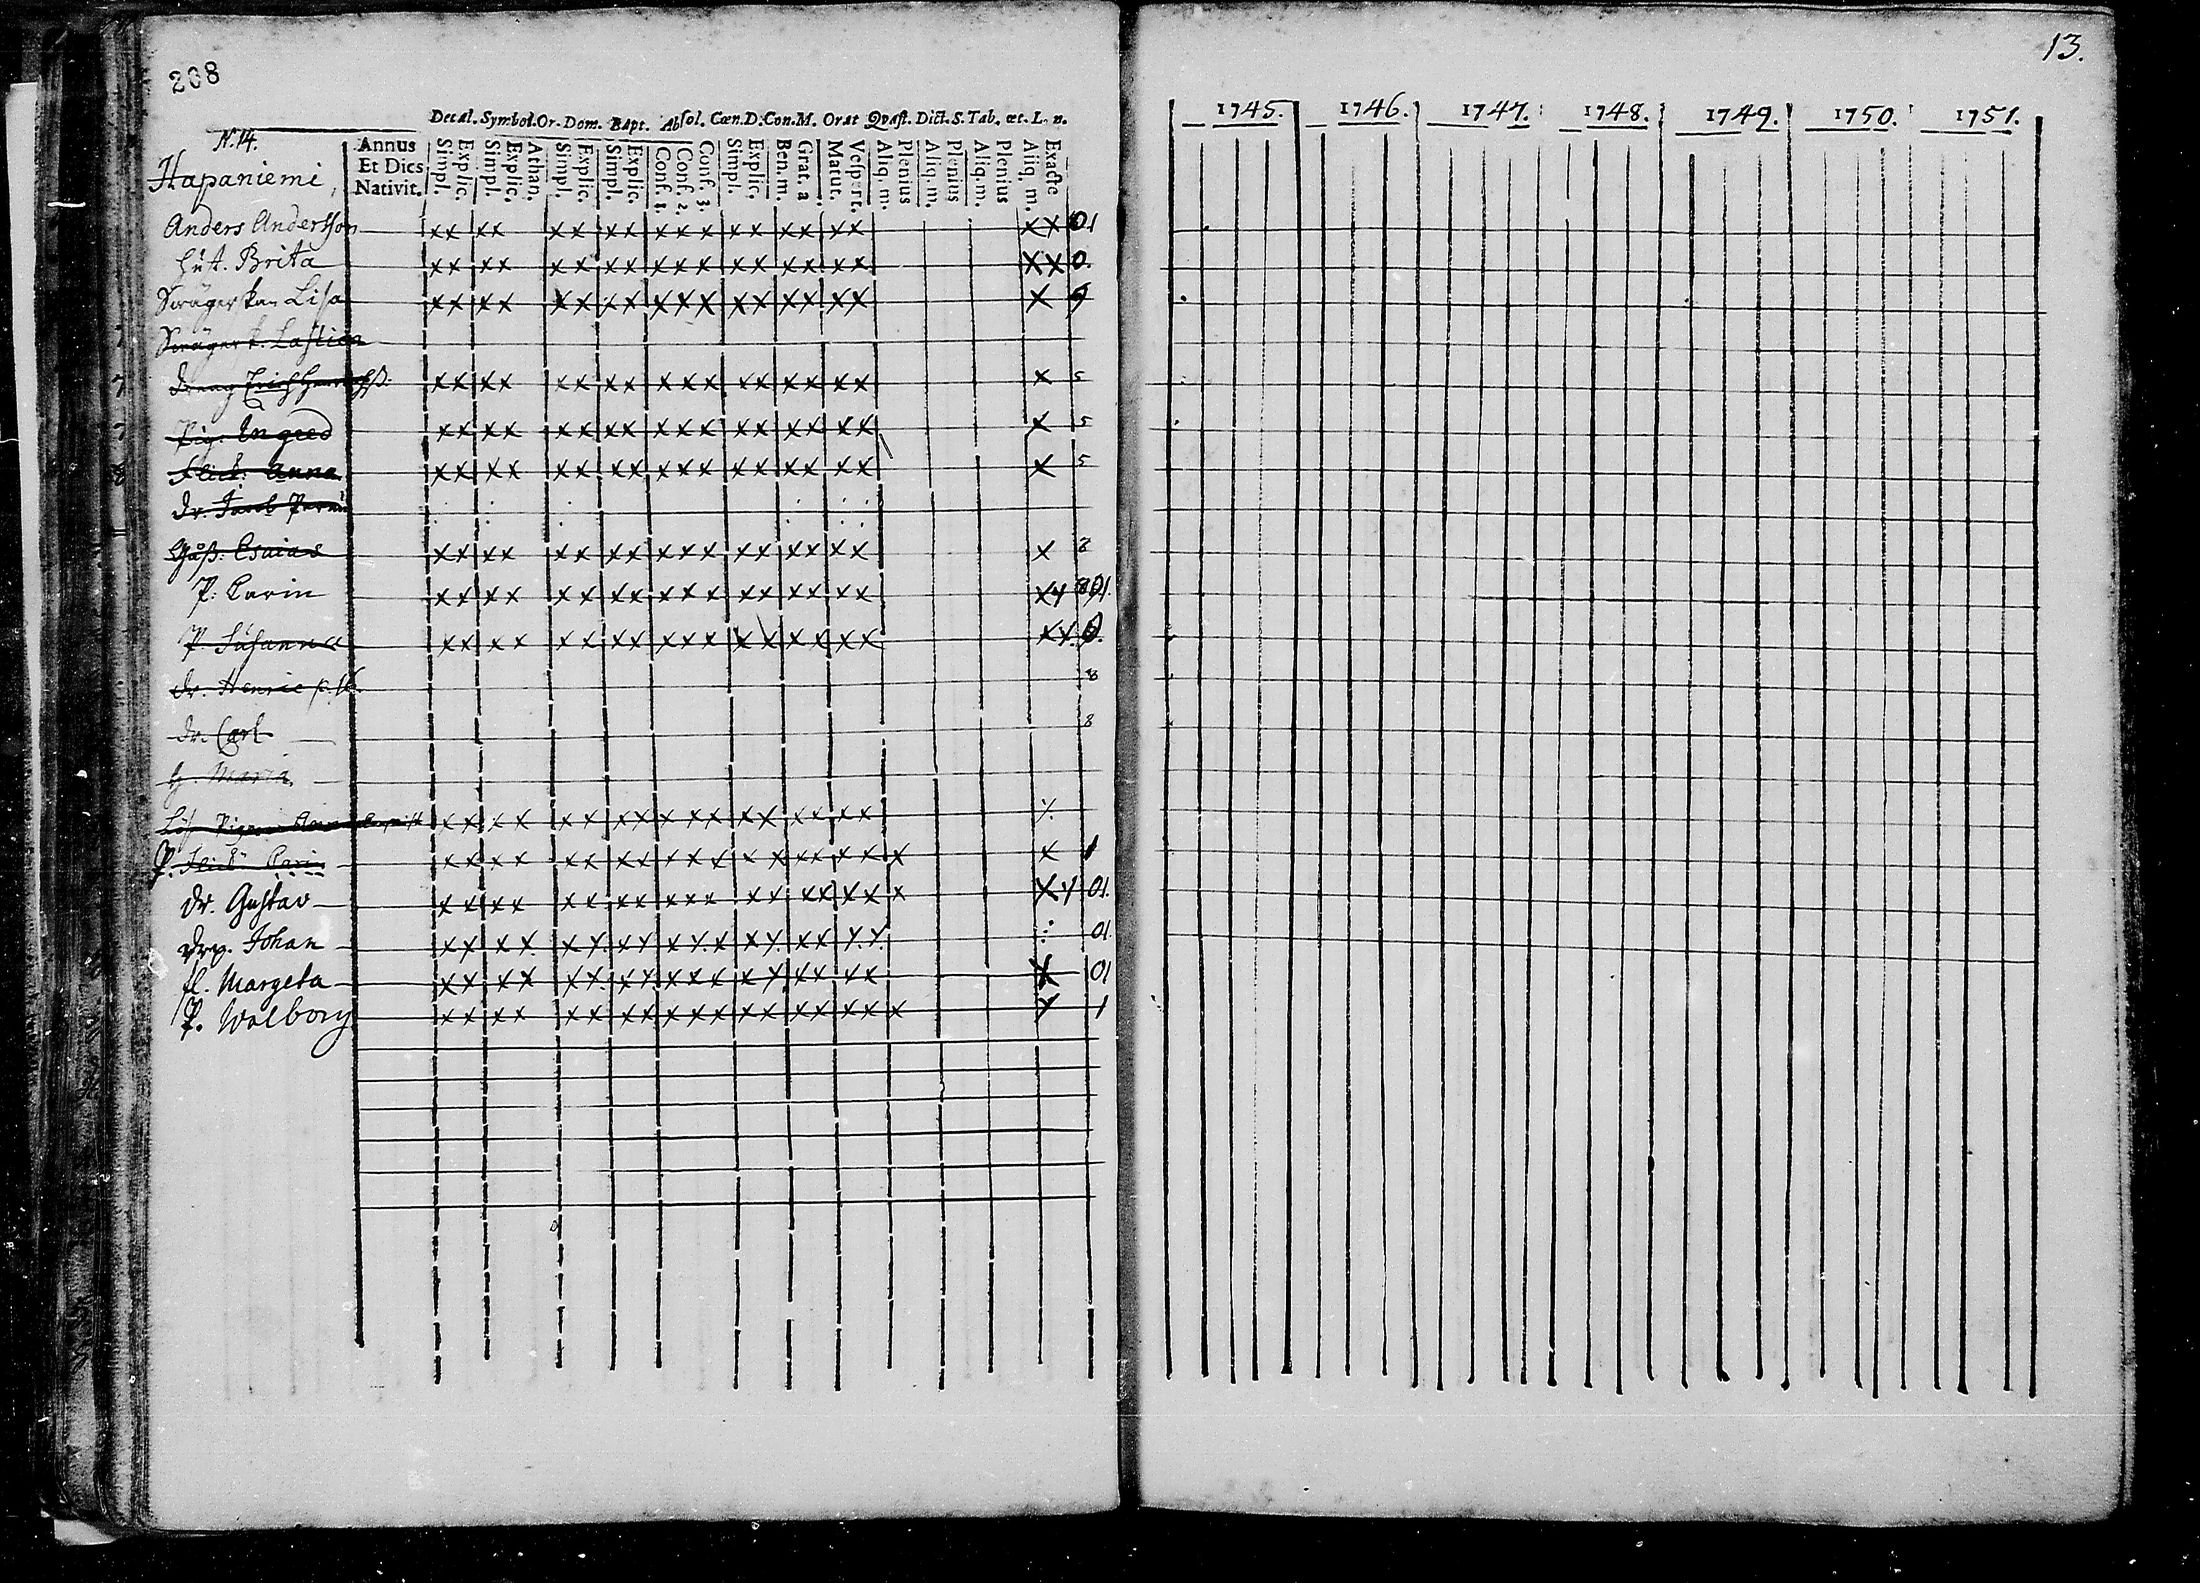 208
13.
Decal. Symbol. Or. Dom. Bapt. Absol. Cœn. D. Con. M. Orat Qvæst. Dict. S. Tab. œt. L. n.
1745. 1746. 1747. 1748. 1749. 1750. 1751.
N. 14.
Hapaniemi
Annus Et Dies Nativit.
Simpl. Explic. Simpl. Explic. Athan. Simpl. Explic. Simpl. Explic. Conf. 1. Conf. 2. Conf. 3. Simpl. Explic. Ben. m. Grat. a Matut. Vespert. Aliq. m. Plenius Aliq. m. Plenius Aliq. m. Plenius Aliq. m. Exacte
Anders Andersson xx xx xx xx xxx xx xx xx xx 01
hust. Brita xx xx xx xx xxx xx xx xx xx 0.
Swägerskan Lisa xx xx xx xx xxx xx xx xx x
Swägersk.
dreng Erich xx xx xx xx xxx xx xx xx x 5
Pig. Ingred xx xx xx xx xxx xx xx xx x 5
flick: Anna xx xx xx xx xxx xx xx xx x 5
dr. Jacob
Esaias xx xx xx xx xxx xx xx xx x 8
P. Carin xx xx xx xx xxx xx xx xx xx
P. Susanna xx xx xx xx xxx xx xx xx xx
dr. Henric 8
dr. Carl 8
h. Maria
Lös Pigan xx xx xx xx xxx xx xx xx
P. xx xx xx xx xxx xx xx xx x x 1
dr. Gustav xx xx xx xx xxx xx xx xx x xx 01.
drg. Johan xx xx xx xx xxx xx xx xx 01
fl. Margeta xx xx xx xx xxx xx xx xx x 01
P. Walborg xx xx xx xx xxx xx xx xx x x 1